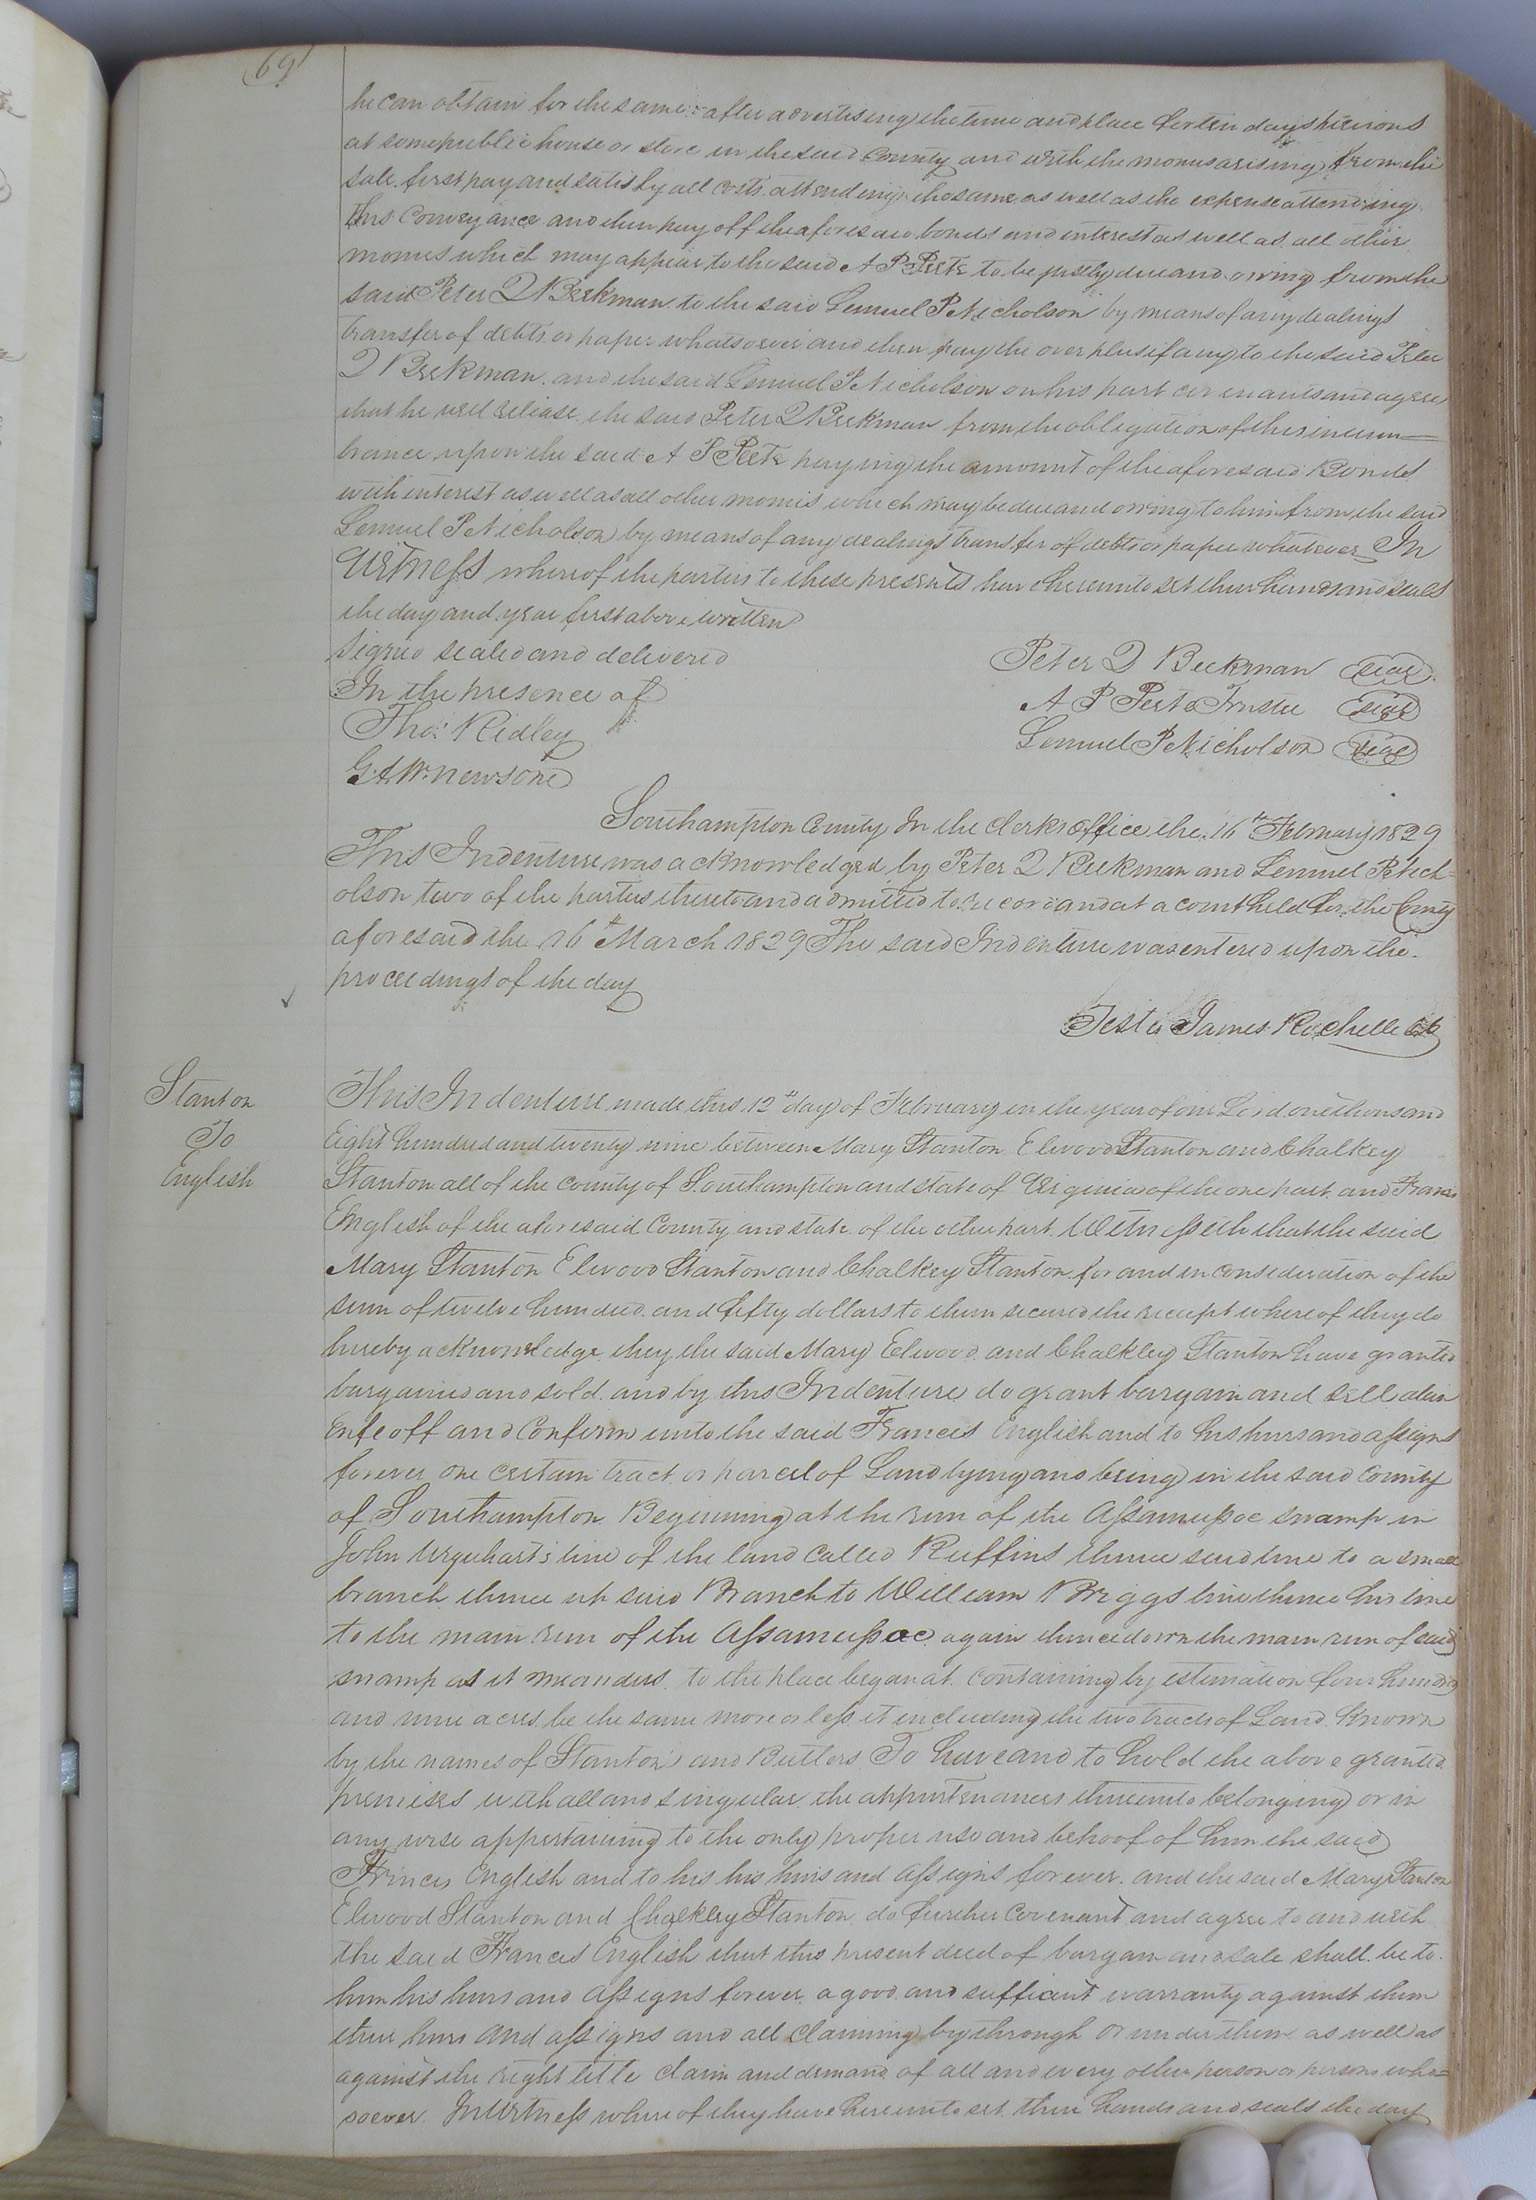 69
he can obtain for the same after advertising the time and place for ten days previous
at some public house or store in the said County and with the monies arising from the
sale first pay and satisfy all costs attending the same as well as the expense attending
this Conveyance and then pay off the aforesaid bonds and interest as well as all other
monies which may appear to the said A P Peete to be justly due and owing from the
said Peter D Beekman to the said Lemuel P Nicholson by means of any dealings
transfer of debts or paper whatsoever and then pay the overplus if any to the said Peter
D Beekman and the said Lemuel P Nicholson on his part covenants and agree
that he will release the said Peter D Beekman from the obligation of this incum=
brance upon the said A P Peete paying the amount of the aforesaid Bonds
with interest as well as all other monies which may be due and owing to him from the said
Lemuel P Nicholson by means of any dealings transfer of debts or paper whatever In
Witness whereof the parties to these presents have hereunto set their hands and seals
the day and year first above written
Signed sealed and delivered
In the presence of
Thos Ridley
G A W Newsone
Peter D Beekman seal
A P Peete Trustee seal
Lemuel P Nicholson seal
Southampton County In the Clerks office the 16th February 1829
This Indenture was acknowledged by Peter D Beekman and Lemuel P Nich=
olson two of the parties thereto and admitted to record and at a court held for the County
aforesaid the 16th March 1829 The said Indenture was entered upon the
proceedings of the day
Teste James Rochelle Ck
Stanton
To
English
This Indenture made this 12th day of February in the year of our Lord one thousand
Eight hundred and twenty nine between Mary Stanton Elwood Stanton and Chalkey
Stanton all of the County of Southampton and state of Virginia of the one part and Francis
English of the aforesaid County and state of the other part Witnesseth that the said
Mary Stanton Elwood Stanton and Chalkey Stanton for and in consideration of the
sum of twelve hundred and fifty dollars to them secured the receipt whereof they do
hereby acknowledge they the said Mary Elwood and Chalkley Stanton have granted
bargained and sold and by this Indenture do grant bargain and sell alien
enfeoff and Confirm unto the said Francis English and to his heirs and assigns
forever one certain tract or parcel of Land lying and being in the said County
of Southampton Beginning at the run of the Assamusoc swamp in
John Urquhart's line of the land called Ruffins thence said line to a small
branch thence up said Branch to William Briggs line thence his line
to the main run of the Assamusoc again thence down the main run of said
swamp as it meanders to the place began at containing by estimation four hundred
and nine acres be the same more or less it including the two tracts of Land Known
by the names of Stantons and Butlers To have and to hold the above granted
premises with all and singular the appurtenances thereunto belonging or in
any wise appertaining to the only proper use and behoof of him the said
Francis English and to his his heirs and assigns forever and the said Mary Stanton
Elwood Stanton and Chalkley Stanton do further Covenant and agree to and with
the said Francis English that this present deed of bargain and sale shall be to
him his heirs and assigns forever a good and sufficient warranty against them
their heirs and assigns and all claiming by through or under them as well as
against the right title claim and demand of all and every other person or persons who=
soever In Witness whereof they have hereunto set their hands and seals the day